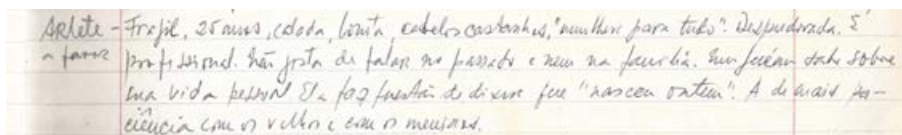 Arlete - Frágil, 25 anos, calada, bonita, cabelos castanhos, "mulher para tudo". Despudorada. É
a favor profissional. Não gosta de falar no passado e nem na família. Ninguém sabe sobre
sua vida pessoal. Ela faz questão de dizer que "nasceu ontem". A de mais pa-
ciência com os velhos e com os meninos.